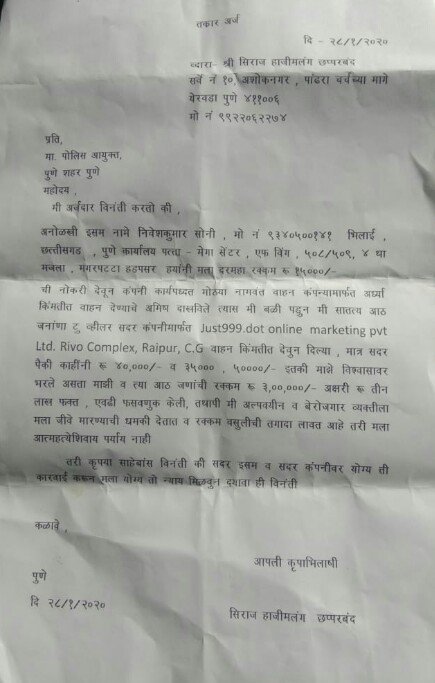 तकार अर्ज
दि - २८/१/२०२०
व्दारा- श्री सिराज हाजीमलंग छप्परबंद
सर्वे नं १०, अशोकनगर , पांढरा चर्चच्या मागे
येरवडा पुणे ४११००६
मो नं ९९२२०६२२७४
प्रति,
मा. पोलिस आयुक्त,
पुणे शहर पुणे
महोदय ,
मी अर्जदार विनंती करतो की ,
अनोळखी इसम नामे निवेशकुमार सोनी , मो नं ९३४०५००१४१ भिलाई ,
छत्तीसगड , पुणे कार्यालय पत्ता - मेगा सेंटर , एफ विंग , ५०८/५०९, ४ था
मजला , मगरपटटा हडपसर हयांनी मला दरमहा रक्कम रु १५०००/-
ची नोकरी देवून कंपनी कार्यपध्दत मोठया नामवंत वाहन कंपन्यामार्फत अर्ध्या
किंमतीत वाहन देण्याचे अमिष दाखविले त्यास मी बळी पडून मी सातत्य आठ
जनांणा टु व्हीलर सदर कंपनीमार्फत Just999.dot online marketing pvt
Ltd. Rivo Complex, Raipur, C.G वाहन किंमतीत देवुन दिल्या , मात्र सदर
पैकी काहींनी रु ४०,०००/- व ३५००० , ५००००/- इतकी माझे विश्वासावर
भरले असता माझी व त्या आठ जणांची रक्कम रु ३,००,०००/- अक्षरी रु तीन
लाख फक्त , एवढी फसवणुक केली, तथापी मी अल्पवयीन व बेरोजगार व्यक्तीला
मला जीवे मारण्याची धमकी देतात व रक्कम वसुलीची तगादा लावत आहे तरी मला
आत्महत्येशिवाय पर्याय नाही
तरी कृपया साहेबांस विनंती की सदर इसम व सदर कंपनीवर योग्य ती
कारवाई करून मला योग्य तो न्याय मिळवुन दयावा ही विनंती
कळावे ,
आपली कृपाभिलाषी
पुणे
दि २८/१/२०२०
सिराज हाजीमलंग छप्परबंद